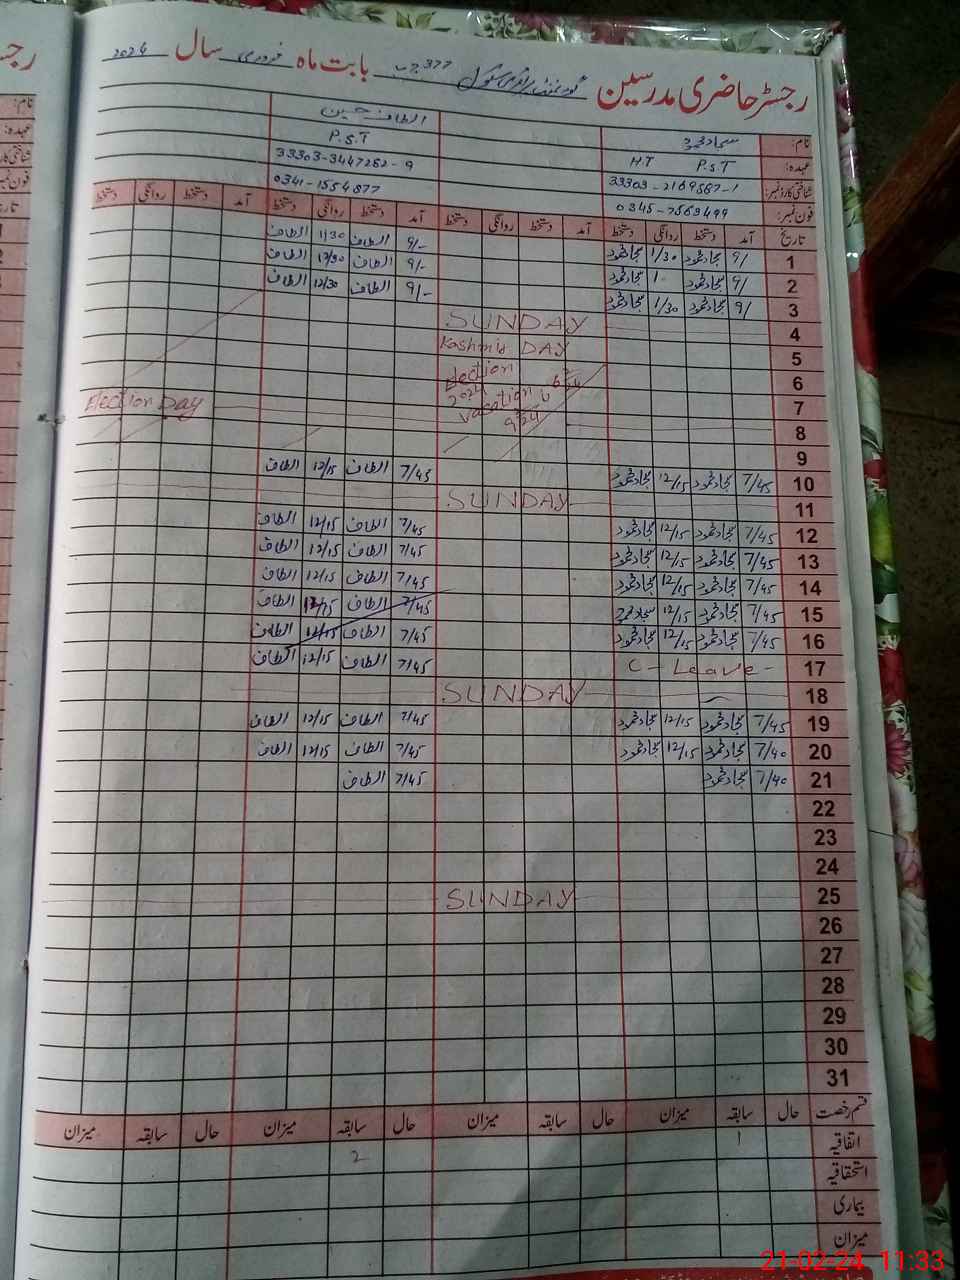 رجسٹر حاضری مدرسین گورنمنٹ پرائمری سکول 377 ج ب بابت ماہ فروری سال 2024
نام: سجاد محمود الطاف حسین
عہدہ: P.S.T H.T P.S.T
شناختی کارڈ نمبر: 33303-2169587-1 33303-3447282-9
فون نمبر: 0345-7563499 0341-1554877
تاریخ آمد دستخط روانگی دستخط آمد دستخط روانگی دستخط آمد دستخط روانگی دستخط آمد دستخط روانگی دستخط
1 9/ سجاد محمود 1/30 سجاد محمود 9/- الطاف 1/30 الطاف
2 9/ سجاد محمود 1- سجاد محمود 9/- الطاف 12/30 الطاف
3 9/ سجاد محمود 1/30 سجاد محمود 9/- الطاف 12/30 الطاف
4 SUNDAY
5 Kashmir DAY
6 election
7 2024 vacation 6 Election Day
8
9
10 7/45 سجاد محمود 12/15 سجاد محمود 7/45 الطاف 12/15 الطاف
11 SUNDAY
12 7/45 سجاد محمود 12/15 سجاد محمود 7/45 الطاف 12/15 الطاف
13 7/45 سجاد محمود 12/15 سجاد محمود 7/45 الطاف 12/15 الطاف
14 7/45 سجاد محمود 12/15 سجاد محمود 7/45 الطاف 12/15 الطاف
15 7/45 سجاد محمود 12/15 سجاد محمود 7/45 الطاف 12/15 الطاف
16 7/45 سجاد محمود 12/15 سجاد محمود 7/45 الطاف 12/15 الطاف
17 C-Leave- 7/45 الطاف 12/15 الطاف
18 SUNDAY
19 7/45 سجاد محمود 12/15 سجاد محمود 7/45 الطاف 12/15 الطاف
20 7/40 سجاد محمود 12/15 سجاد محمود 7/45 الطاف 12/15 الطاف
21 7/40 سجاد محمود 7/45 الطاف
22
23
24
25 SUNDAY
26
27
28
29
30
31
قسم رخصت حال سابقہ میزان حال سابقہ میزان حال سابقہ میزان حال سابقہ میزان
اتفاقیہ 1 2
استحقاقیہ
بیماری
میزان
21-02-24 11:33